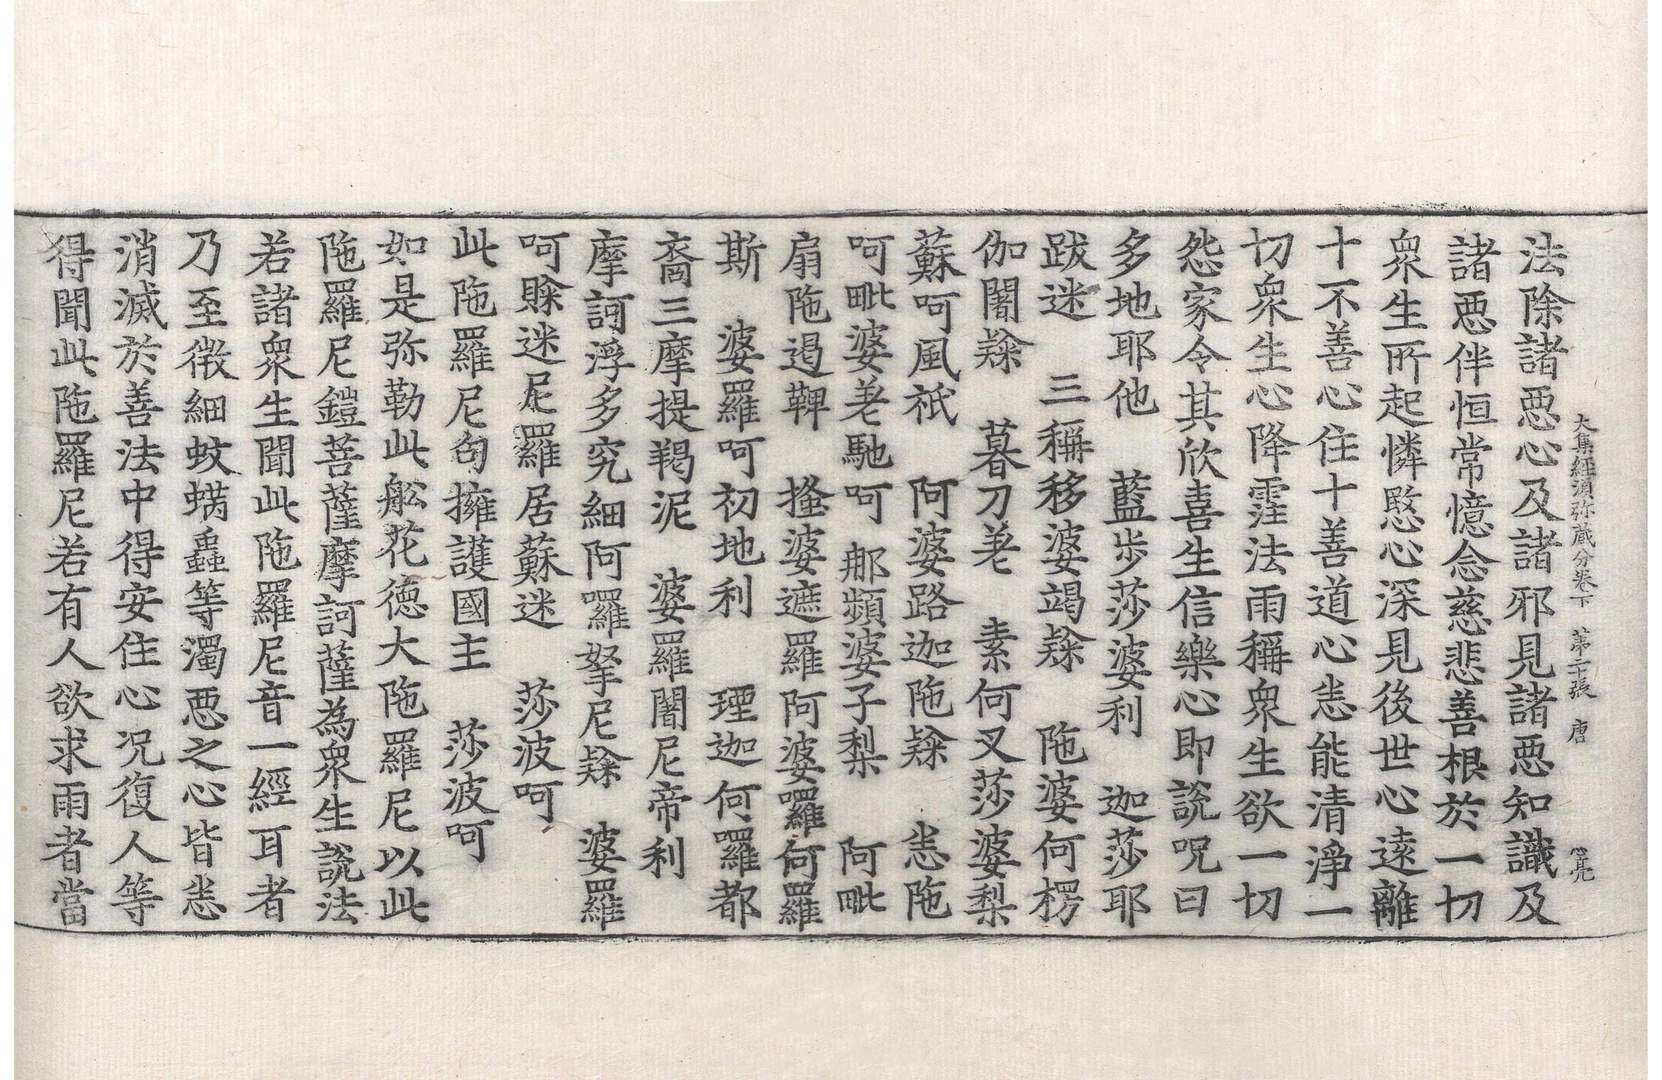 大集經須弥蔵分卷下 第二十張 唐
法除諸惡心及諸邪見諸惡知識及
諸惡伴恒常憶念慈悲善根於一切
衆生所起憐愍心深見後世心遠離
十不善心住十善道心悉能清淨一
切衆生心降霔法雨稱衆生欲一切
怨家令其欣喜生信樂心即說呪曰
多地耶他 藍步莎婆利 迦莎耶
跋迷 三稱移婆竭𨽁 陁婆何楞
伽闍𨽁 暮刀荖 素何叉莎婆梨
蘇呵風祇 阿婆路迦陁𨽁 悉陁
呵毗婆荖馳呵 那頻婆子梨 阿毗
扇陁遏鞞 搔婆遮羅阿婆囉何羅
斯 婆羅呵初地利 理迦何囉都
裔三摩提羯泥 婆羅闍尼帝利
摩訶浮多究細阿囉拏尼𨽁 婆羅
呵賒迷尼羅居蘇迷 莎波呵
此陁羅尼句擁護國主 莎波呵
如是弥勒此舩花德大陁羅尼以此
陁羅尼鎧菩薩摩訶薩為衆生說法
若諸衆生聞此陁羅尼音一經耳者
乃至微細蚊螨蟲等濁惡之心皆悉
消滅於善法中得安住心况復人等
得聞此陁羅尼若有人欲求雨者當